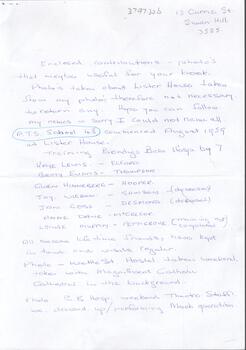 Swan Hill
3585.
Enclosed contributions - photo's
that maybe useful for your book.
Photo's taken about Lister House taken
from my photos therefore not necessary
to return any. Hope you can follow
my notes - sorry I could not name all
School 43 commenced August 1959
at Lister House.
Training Bendigo Base Hosp by 7
Kaye Lewis -
Betty Evans - Thompson
Gwen Hinneberg - Hooper.
Joy Wilson - (deceased)
Joan Goss - Desmond (deceased)
Marie Daine -
Louise Murray -
All became life time friends, have kept
in touch and visits regular.
Photo - Wattle St. Hostel taken weekend
taken with Magnificent Catholic
Cathedral in the background.
Photo B.B Hosp. weekend Theatre Staff.
we dressed up / performing Mock operation